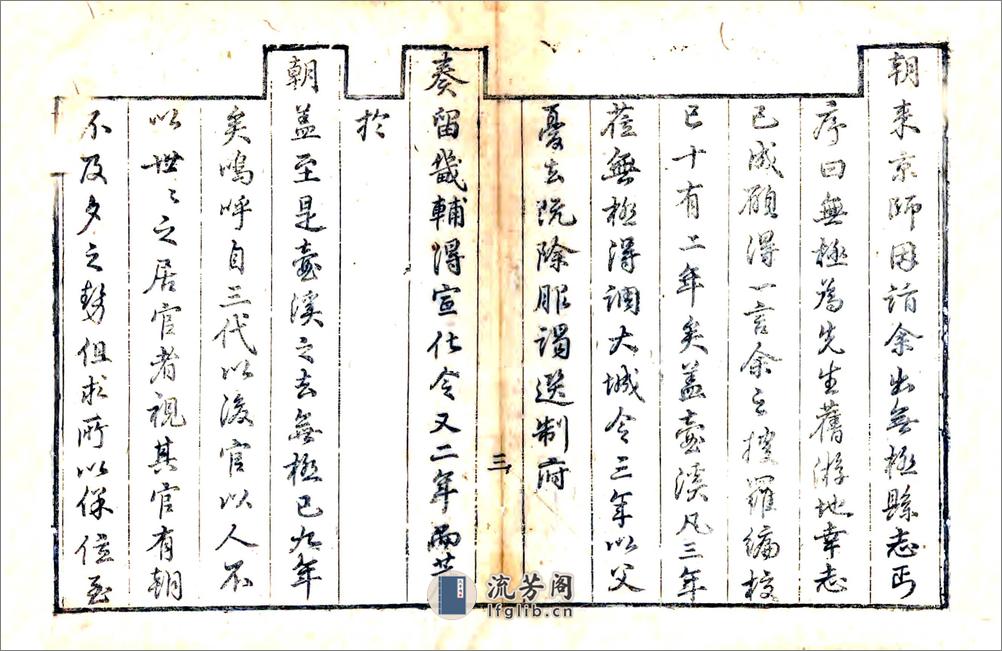 朝来京師因請余出無極縣志丐
序曰無極為先生舊游地幸志
已成願得一言余之搜羅編校
已十有二年矣蓋壺溪凡三年
蒞無極得調大城令三年以父
憂去既除服謁選制府
奏留畿輔得宣化令又二年而其
於
朝蓋至是壺溪之去無極已九年
矣嗚呼自三代以後官以人不
以世世之居官者視其官有朝
不及夕之勢但求所以保位至
三
流芳阁
lfglib.cn